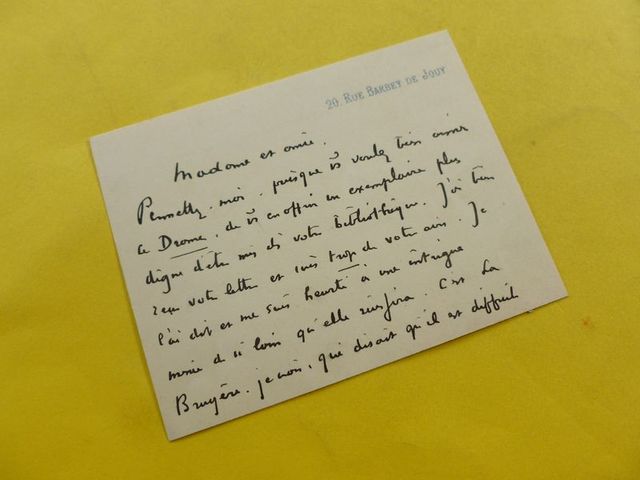 20, RUE BARBEY DE JOUY
Madame et amie,
Permettez-moi, puisque vs voulez bien aimer
ce Drame, de vs en offrir un exemplaire plus
digne d'être mis ds votre bibliothèque. J'ai bien
reçu votre lettre et suis trop de votre avis. Je
l'ai dit et me suis heurté à une intrigue
menée de si loin qu'elle réussira. C'est La
Bruyère, je crois, qui disait qu'il est difficile